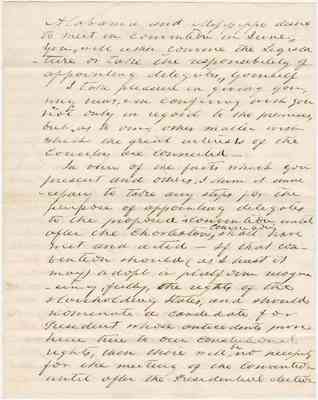 Alabama and
to meet in Convention in June,
you will either convene the Legisla-
ture or take the responsibility of
appointing delegates, yourself
I take pleasure in giving you
my views, in confering with you
not only in regard to the premises
but, as to any other matter with
which the great interests of the
Country are connected—
In view of the facts which you
present and others, I deem it
to take any steps for the
purpose of appointing delegates
to the proposed convention, until
after the Charleston Convention, shall have
met and acted — If that con-
vention should (as I trust it
may) adopt a platform recogn-
-izing, fully, the rights of the
slaveholding States, and should
nominate a candidate for
President whose antecedents
him true to our constitutional
rights, then there will be no necessity
for the meeting of the Convention
until after the Presidential election